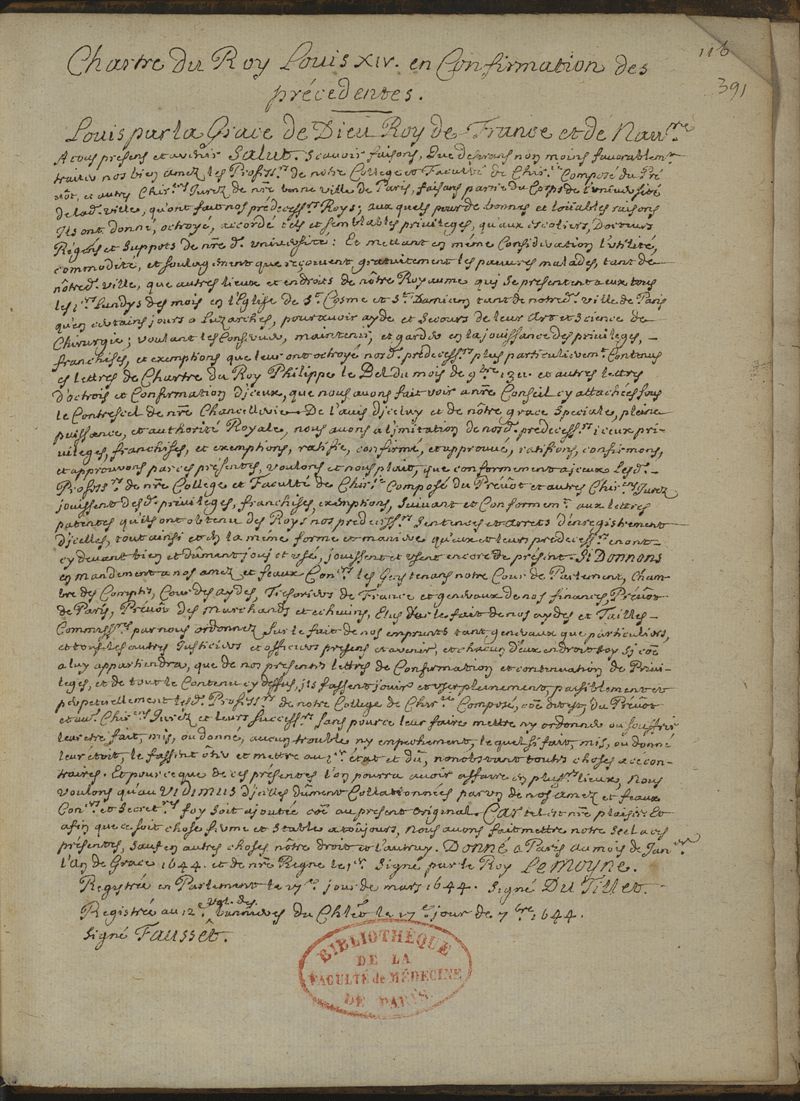 116
391
Chartre du Roy Louis XIV. en Confirmation des
précedentes.
Louis par la Grace de Dieu Roy de France et de Nav.re
A tous presens et avenir Salut. Scavoir faisons, Que desirans non moins favorablem.t
traiter nos bien amez les Profess.rs de notre College et Faculté de Chir.ie Composé du Pré
vôt, et autres Chir.ens Jurez de nr̃e bonne ville de Paris, faisans partie du Corps de l'université
de lad.e ville, qu'ont fait nos prédecess.rs Roys; aux quels pour de bonnes et loüables raisons
Ils ont donné, octroyé, accordé tels et semblables privileges, qu'aux escoliers, Docteurs
Régens et Suppots de nr̃e d.e université: Et mettant en même Consideration l'utilité,
commodité, et soulagement que reçoivent gratuitement les pauvres malades, tant de
nôtre d.e ville, que autres lieux et endroits de nôtre Royaume qui se presentent a eux tous
les 1.ers Lundys des mois en l'Eglise de S.t Cosme et S.t Damien tant de notre d.e ville de Paris
qu'en certains jours a Luzarches, pour avoir ayde et Secours de leur Art et Science de
Chirurgie; voulant les Conserver, maintenir, et garder en la jouissance des privileges,
franchises, et exemptions que leur ont octroyé nos d. prédecess.rs plus particulierem.t Contenus
es lettres de Chartre du Roy Philippe le Bel du mois de 9.bre 1311 et autres lettres
d'octrois et Confirmation d'jceux, que nous avons fait voir a nr̃e Conseil cy attachées sous
le Contrescel de nr̃e Chancellerie. De l'avis d'jceluy et de nôtre grace Speciale, pleine
puissance, et authorité Royale, nous avons à l'imitation de nos d. predecess.rs jceux pri-
vileges, franchises, et exemptions, ratifié, confirmé, et approuvé, ratifions, confirmons,
et approuvons par ces présentes, voulons et nous plait, que conformement a jceux Les d.
Profess.rs de nr̃e College et Faculté de Chir.ie Composé du Prévôt et autres Chir.ens Jurez
jouissent des d. privileges, franchises, exemptions, Suivant et Conformem.t aux lettres
patentes qu'ils ont obtenu des Roys nos predecess.rs Sentences et arrets d'enregistrement
d'jcelles, tout ainsi et en la même forme et maniere qu'eux et leurs prédecess.rs en ont
cy devant bien et dûment joui et usé, jouissent et usent encore de present. Si Donnons
en mandement a nos amez et feaux Con.ers les Gens tenans notre Cour de Parlement, Cham-
bre des Comptes, Cour des aydes, Trésoriers de France et generaux de nos finances, Prévot
de Paris, Prévôt des marchands et echevins, Elus sur le fait de nos aydes et Tailles
Commiss.res par nous ordonnez Sur le fait de nos emprunts tant generaux que particuliers,
et tous les autres Justiciers et officiers présens et avenir, et chacun d'eux endroit soy si cõe
a luy appartiendra, que de nos presentes lettres de Confirmation et continuation de Privi-
leges, et de tout le Contenu cy dessus, jls fassent jouir et user pleinement, paisiblement et
perpetuellement les d. Profess.rs de notre College de Chir.ie Composé, cõe dit est, du Prévôt
et au. Chir.ens Jurez et leurs Success.rs sans pour ce leur faire mettre ny ordonner ou souffrir
leur etre fait, mis, ou donné, aucun trouble ny empechement, le quel si fait, mis, ou donné
leur étoit, le fassent ôter et mettre au 1.er état et dû, nonobstant touts choses a ce con-
traires. Et pour ce que de ces présentes l'on pourra avoir affaire en plus.rs lieux, Nous
voulons qu'au VIDIMUS d'jcelles dûment Collationnées par un de nos amez et feaux
Con.ers et Secret.res foy soit ajoutée cõe au present original. CAR tel est nr̃e plaisir. Et
afin que ce soit chose ferme et stable a toûjours, Nous avons fait mettre notre Scel a ces
présentes, sauf en autres choses nôtre droit et l'autruy. Donné a Paris au mois de Janv.er
l'An de Grace 1644. et de nr̃e Regne le 1.er Signé par le Roy Lemoyne.
Registrée en Parlement le 17.e jour de mars 1644. Signé Du Tillet.
Registrée au 12.e vol. des bannieres du Chlẽt le 17.e jour de 7.bre 1644.
Signé Fausset.
BIBLIOTHÈQUE
DE LA
FACULTÉ de MÉDECINE
DE PARIS